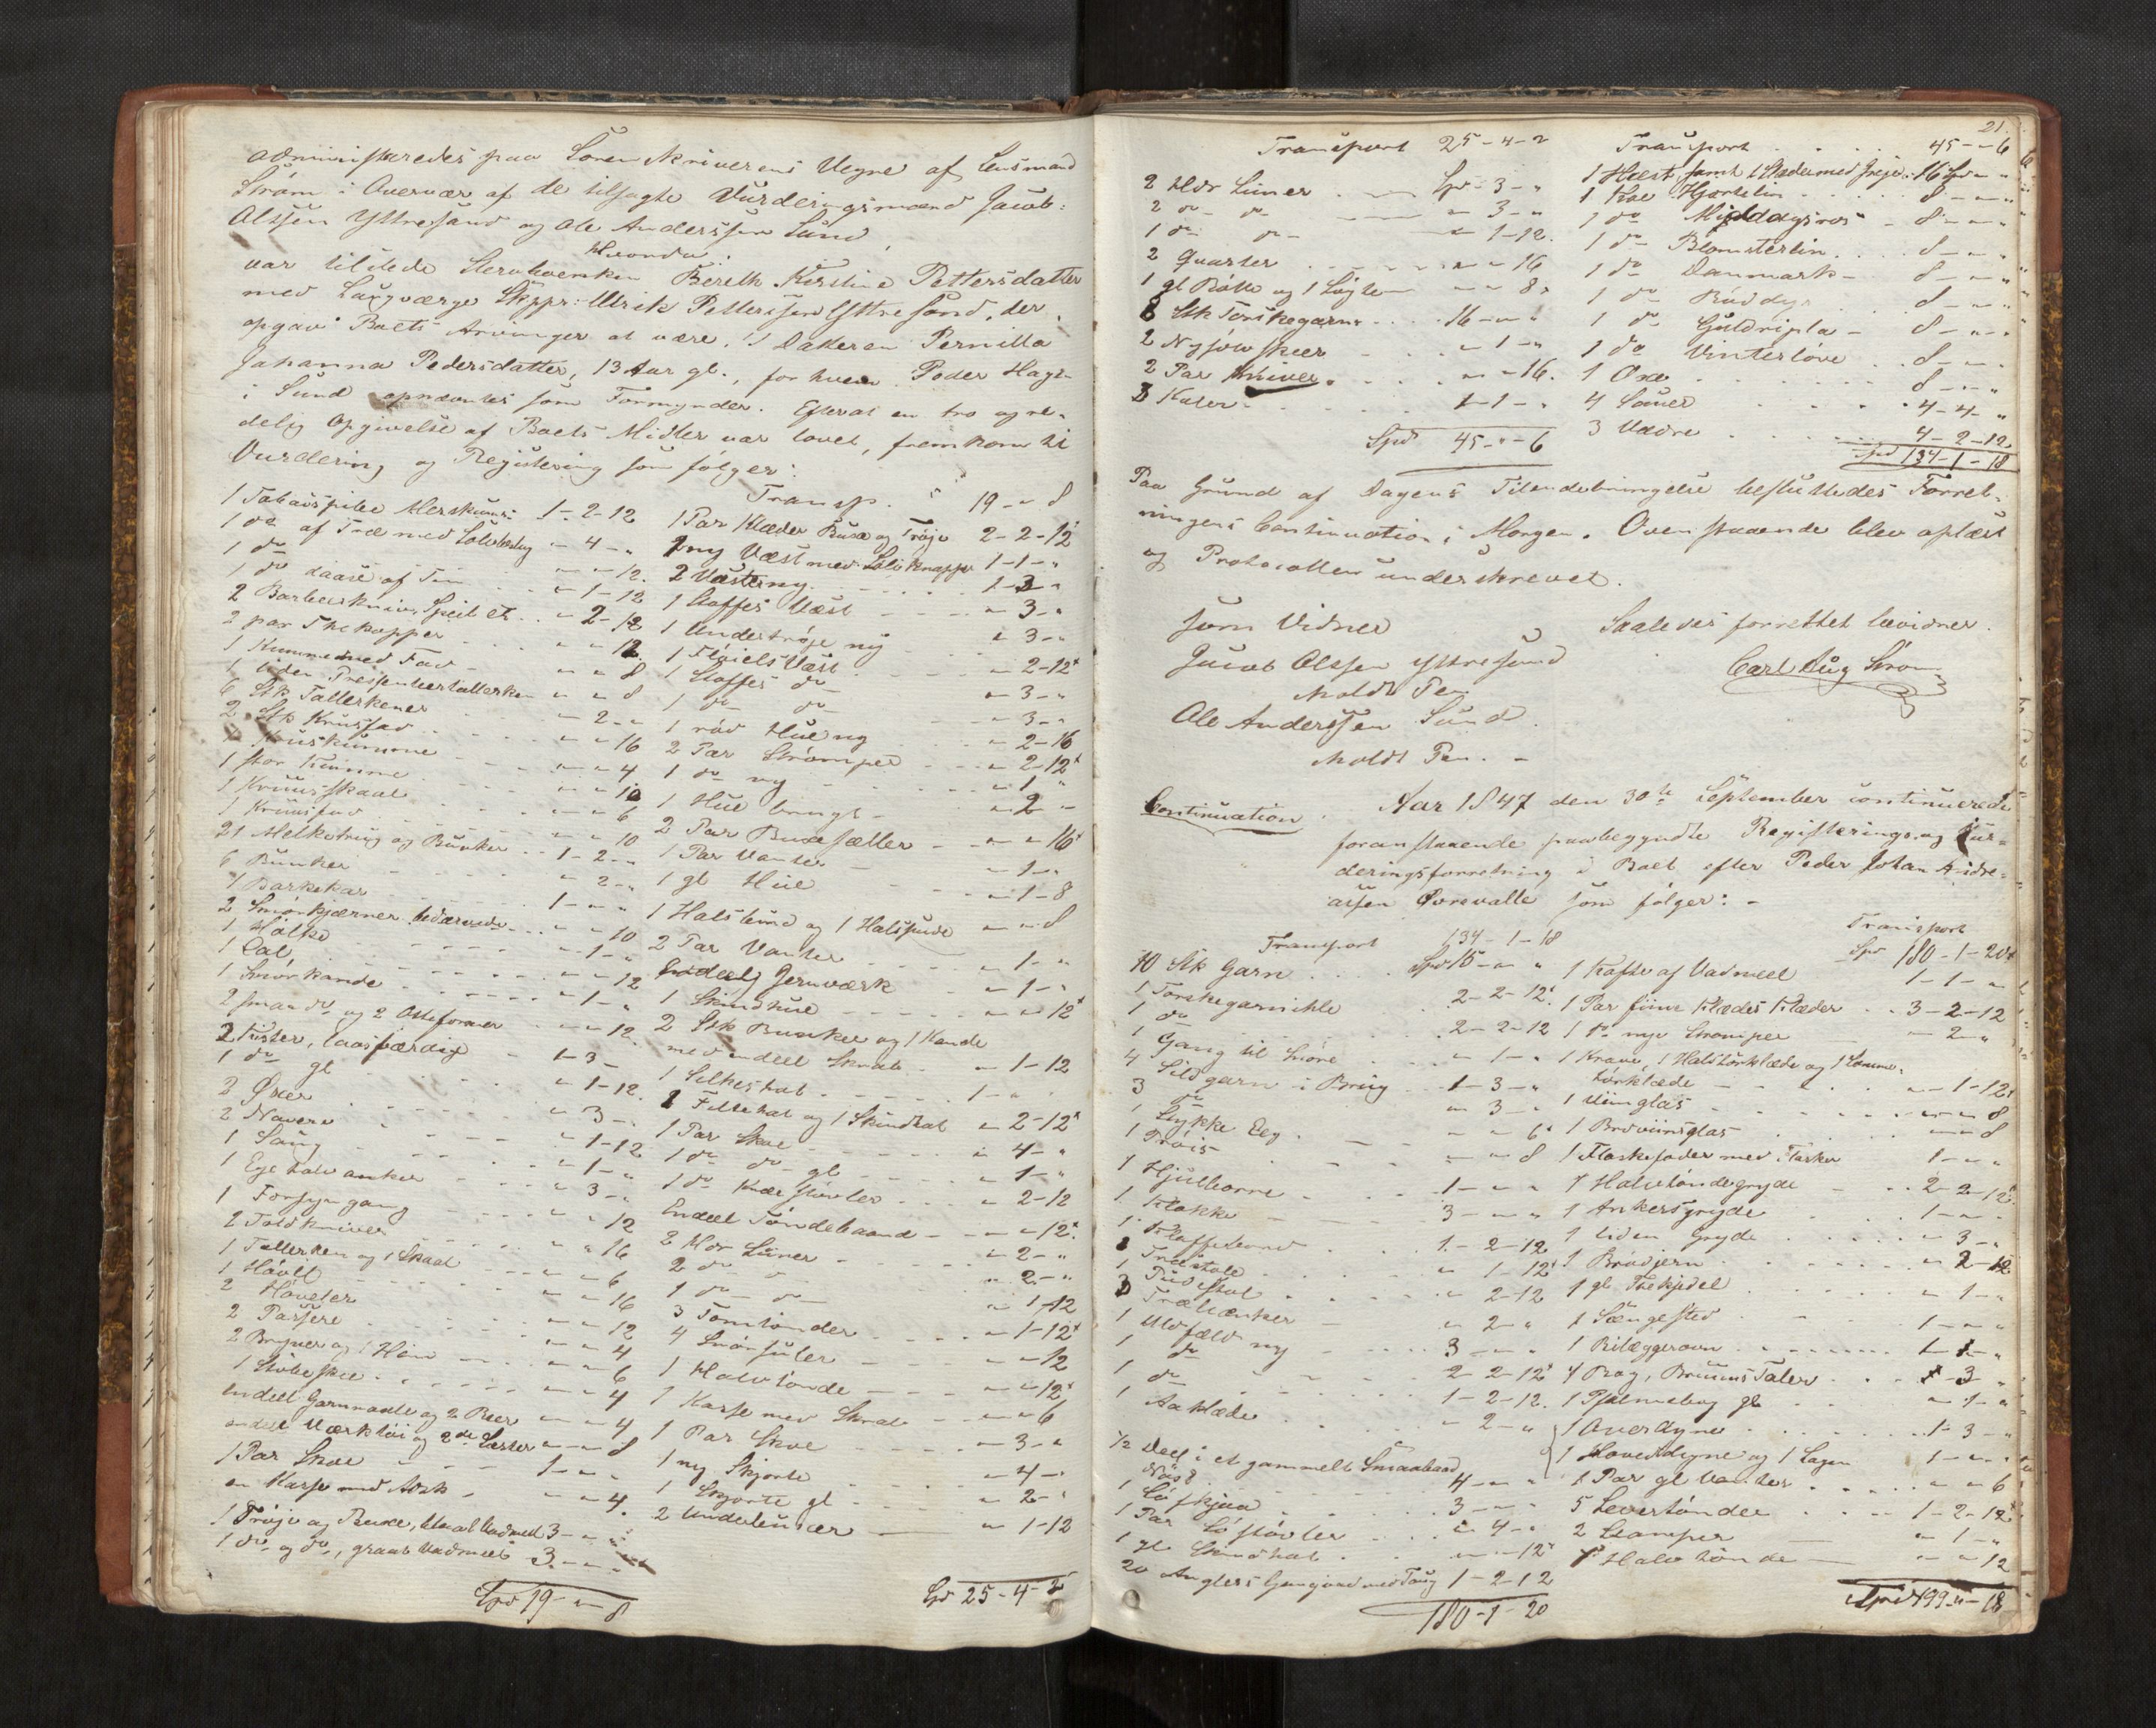 administraredes paa Sorenskriverens Vegne af Lensmand
Strøm i Overvær af de tilsagte Vurderingsmænd Jacob
Olssen Yttresund og Ole Anderssen Sund,
Hvorda:
var tilstede Stervboenken Bereth Kirstine Pettersdatter
med Laugværge Skppr: Ulrik Petterssen Yttresund, der
opgav Boets Arvinger at være: 1 Datter Pernilla
Johanna Pedersdatter, 13 Aar gl., for hvem Peder Hag
i Sund opnævntes som Formynder. Efterat en tro og re-
delig Opgivelse af Boets Midler var lovet, fremkom til
Vurdering og Registering som følger:
1 Tobakspibe Merskums 1-2-12
1 do af Træ med Sølvbeslag " 4 - "
1 do " " 12.
1 do daase af Tin " 1-12
2 Barbeerknive, Speil etc. " 2-12
2 par Thekopper " " 12.
1 Kumme med Fad " " 8
1 liden Presenteertallerken " " 8
6 Stk Tallerkener " 2 - "
2 Stk Kruusfad " " 16
Kruuskumme " " 4
1 stor Kumme " " 10
1 Kruusskaal " " 6
1 Kruusfad " " 10
21 Melketrug og Bunker 1-2-"
6 Bunker " 2-"
1 Barkekar 1-"-"
2 Smørkjærner bedærvede " " 10
1 Holke " 1-"
1 Bal " " 12
1 Smørkande " 1-"
2 smaa do og 2 Osteformer " " 12.
2 Kister, laasfærdige 1-3-
1 do gl " 1-12.
2 Øxer " 3-"
2 Navere " 1-12
1 Saug " 1-"
1 Ege halvanker " 3-"
1 Forsyngang " " 12
2 Toldkniver " " 16
1 Tallerken og 1 Skaal " " 6
1 Høvel " " 16
2 Høveler " " 12
2 Passere " " 4
2 Bryner og 1 Hein " " 6
1 Støbeskee " " 4
Endeel Garnnaale og 2 River " " 4
endeel Værktøi og 2de Læster " " 8
1 Par Skoe 1-"-"
en Kasse med Arsk " " 4.
1 Trøje og Buxe, blaat Vadmel 3-"-"
1 do og do, graat Vadmel 3-"-"
Spd 19 - " - 8
Transp. 19-"-8
1 Par Klæder Buxe og Trøje 2-2-12
1 ny Væst med Sølvknapper 1-1-"
2 Væster ny 1-3-"
1 Stoffes Væst " 3-"
1 Undertrøje ny " 3-"
1 Fløiels Væst " 2-12
1 Stoffes do " 3-"
1 do do " 3-"
1 rød Hue ny " 2-16
2 Par Strømper " 2-12
1 do ny " 1 "
1 Hue brugt " 2 -
2 Par Buxeseller " " 16
1 Par Vanter " 1-"
1 gl Hue " 1-8
1 Halsbind og 1 Halspude " " 8
2 Par Vanter " 1-"
Endeel Jernværk " 1-"
1 Skindhue " " 12
2 Stk Bunker og 1 Kande
med endeel Skrab " 1-12
1 Silkehat 1-"-"
1 Filtehat og 1 Skindhat " 2-12
1 Par Skoe " 4-"
1 do do gl " 1-"
1 do Knæstøvler " 2-12
Endeel Tøndebaand " " 12.
2 Hdr Liiner " 2-"
2 do " 2-"
1 do do " 1-12
3 Tomtønder " 1-12
4 Snørsuler " " 12
1 Halvtønde " " 12
1 Kasse med Skrab " " 6
1 Par Skoe " 3-"
1 ny Skjorte " 4-"
1 Skjorte gl " 2-"
2 Underbuxer " 1-12
Spd 25-4-2
21.
Transport 25-4-2
2 Hdr Liiner Spd 3-"
2 do do " 3-"
1 do do " 1-12.
2 Quarter " " 16
1 gl Bøtte og 1 Løgte " " 8
8 Stk Torskegarn 16-"-"
2 Nysølvskeer " 1-"
2 Par Kniver " " 16.
3 Kuler 1-1-"
Spd 45-"-6
Transport 45-"-6
1 Hæst, samt 1 Slæde med Greje 16 Spd " "
1 Koe Hjortelin 8-"-"
1 do Middagsros 8-"-"
1 do Blomsterlin 8-"-"
1 do Danmark 8-"-"
1 do 8-"-"
1 do Guldripla 8-"-"
1 do Vinterløve 8-"-"
1 Oxe 8-"-"
4 Souer 4-4-"
3 Vædre 4-2-12
Spd 134-1-18
Paa Grund af Dagens Tilendebringelse besluttedes Forret-
ningens Continuation i Morgen. Ovenstaaende blev oplæst
og Protocollen underskrevet.
Som Vidner
Jacob Olssen Yttresund
Moldt Pen
Ole Anderssen Sund.
Moldt Pen.
Saaledes forrettet bevidner
Carl Aug Strøm
Continuation. Aar 1847 den 30te September continuerede
foranstaaende paabegyndte Registerings og Vur-
deringsforretning i Boet efter Peder Johan Andre-
assen Øvrevalle som følger: -
Transport 134-1-18
10 Stk Garn Spd 15-"-"
1 Torskegarnihle 2-2-12
1 do 2-2-12
1 Gang til Snøre " 1-"
4 Sildgarn i Brug 1-3-"
3 do " 3-"
1 Stykke Eeg " " 6
1 " " 8
1 Hjulborre 1-"-"
1 Klokke 3-"-"
1 Klaffebord 1-2-12
Træstole " 1-12
1 Pudestol " 2-12
3 Træbænker " 2-"
1 Uldfæld ny 3-"-"
1 do 2-2-12
1 do 1-2-12.
1 Aaklæde " 2-"
1/2 Deel i et gammelt Smaabaad
4-"-"
1 3-"-"
1 Par Søstøvler " 4-"
1 gl Skindhat " " 12
20 Anglers Gangvad med Taug 1-2-12
180-1-20
Transport
Spd 180-1-20
1 Kofte af Vadmeel 1-1-"
1 Par fiine Klædes Klæder 3-2-12
1 do nye Strømper " 2-"
1 Krave, 1 Halstørklæde og 1 Lomme-
tørklæde " 1-12
1 Viinglas " " 8
1 Brændviinsglas " " 8
1 Flaskefoder med Flasker 1-"-"
1 Halvtøndegryde 2-2-12
1 Ankersgryde 1-"-"
1 liden Gryde " 3-"
1 Brødjern " 2-12
1 gl Thekjedel " 1-"
1 Sængested 1-"-"
1 Bilæggerovn 1-1-"
4 Bøg, Bruuns Taler 3
1 Psalmebog gl " 1-"
1 Overdyne 1-3-"
1 Hoveddyne og 1 Lagen 1-"-"
1 Par gl Vanter " " 6
5 Levertønder 1-2-12
2 Stamper " 1-"
1 Halvtønde " " 12
Spd 199-"-18